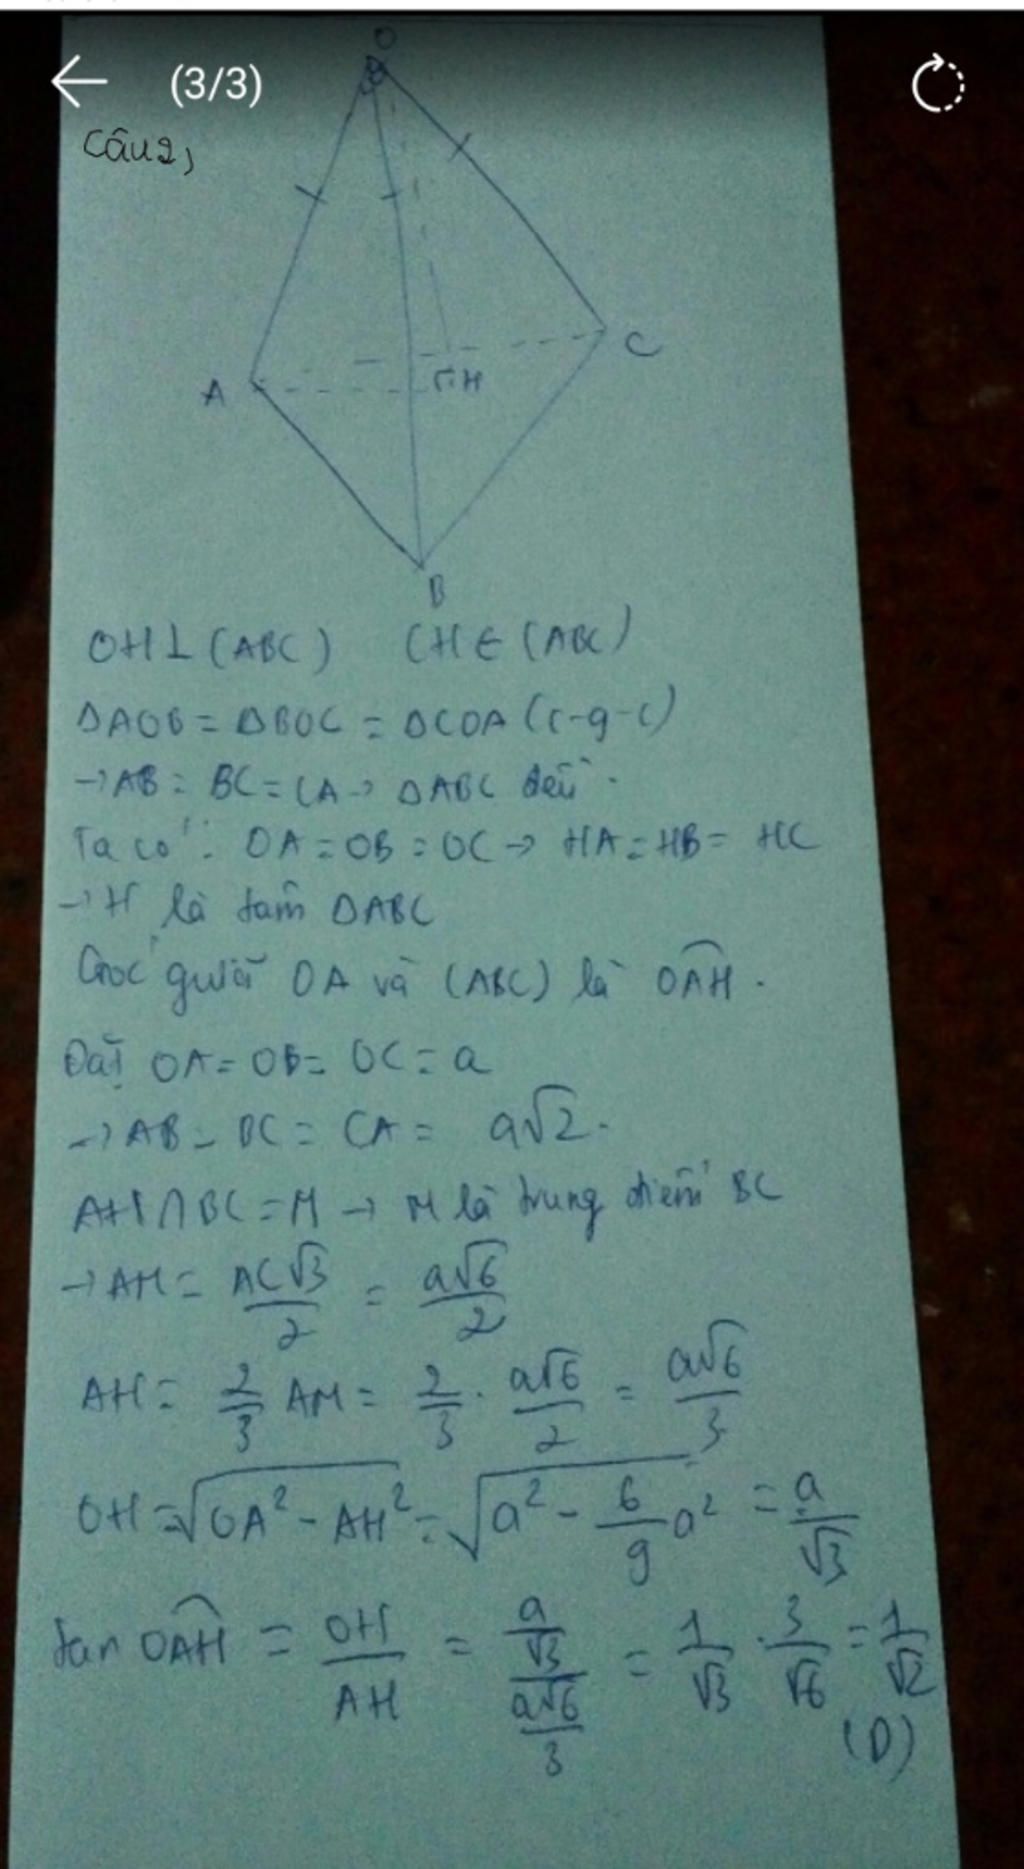 (3/3)
Câu 2,
O
A
C
H
B
OH ⊥ (ABC) (H ∈ (ABC)
ΔAOB = ΔBOC = ΔCOA (c-g-c)
→ AB = BC = CA → ΔABC đều.
Ta có: OA = OB = OC → HA = HB = HC
→ H là tâm ΔABC
Góc giữa OA và (ABC) là OAH.
Đặt OA = OB = OC = a
→ AB = BC = CA = a√2.
AH ∩ BC = M → M là trung điểm BC
→ AM = AC√3/2 = a√6/2
AH = 2/3 AM = 2/3 · a√6/2 = a√6/3
OH = √(OA² - AH²) = √(a² - 6/9 a²) = a/√3
tan OAH = OH/AH = (a/√3)/(a√6/3) = 1/√3 · 3/√6 = 1/√2
(D)